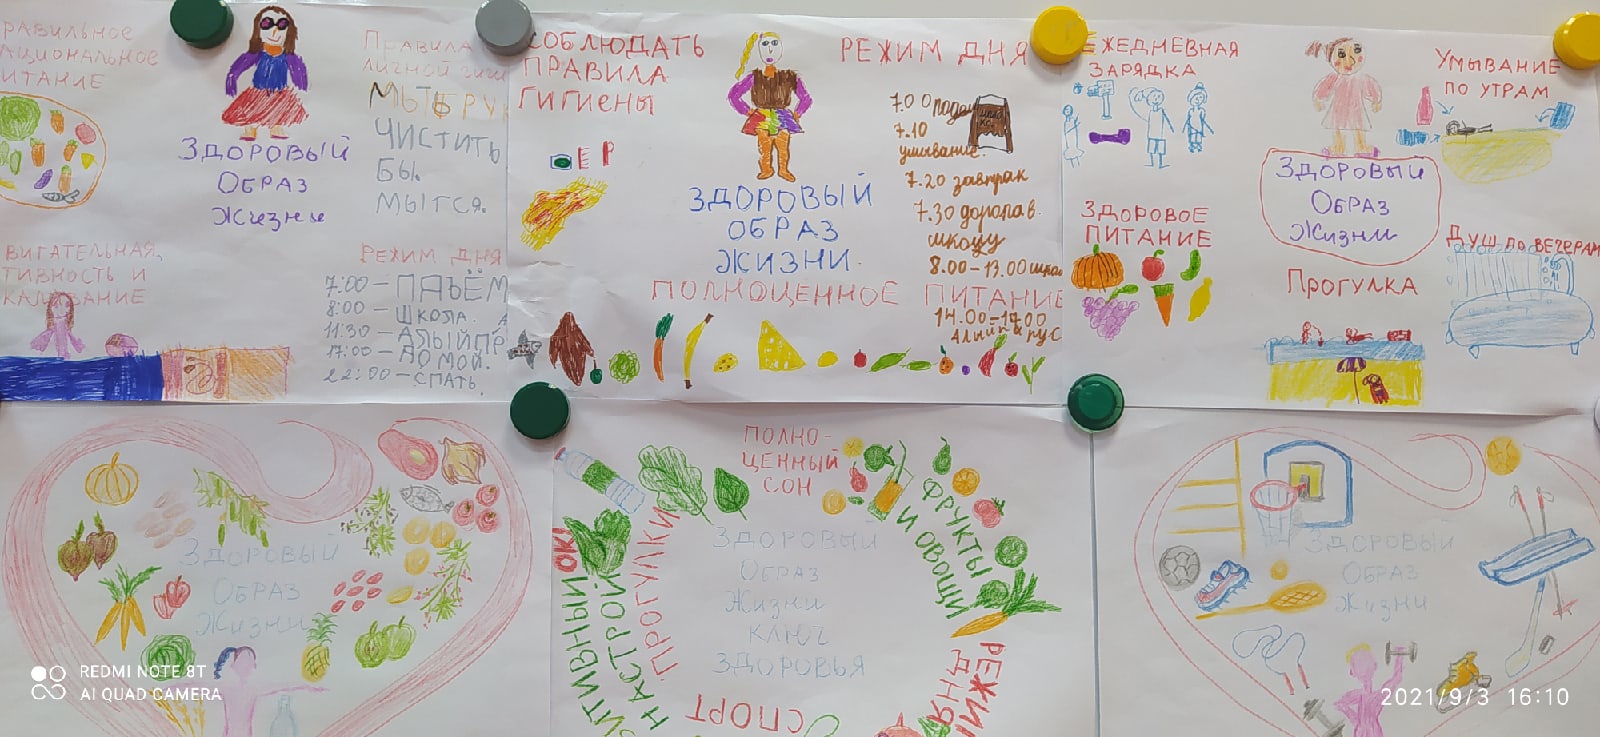 РАВИЛЬНОЕ
АЦИОНАЛЬНОЕ
ИТАНИЕ
ЗДОРОВЫЙ
ОБРАЗ
ЖИЗНИ
ПРАВИЛА
ЛИЧНОЙ
МЫТЬ РУ
ЧИСТИТЬ
МЫТСЯ.
ВИГАТЕЛЬНАЯ,
ТИВНОСТЬ И
РЕЖИМ ДНЯ
7:00 – ПАЬЁМ
8:00 – ШКОЛА.
11:30 –
17:00 – ДОМОЙ.
22:00 – СПАТЬ
СОБЛЮДАТЬ
ПРАВИЛА
ГИГИЕНЫ
ЗДОРОВЫЙ
ОБРАЗ
ЖИЗНИ.
РЕЖИМ ДНЯ
7.00
7.10
умывание.
7.20 завтрак
7.30 дорога в
школу
8.00–13.00
14.00–17.00
ПОЛНОЦЕННОЕ ПИТАНИЕ
ЕЖЕДНЕВНАЯ
ЗАРЯДКА
ЗДОРОВОЕ
ПИТАНИЕ
ЗДОРОВЫЙ
ОБРАЗ
ЖИЗНИ
ПРОГУЛКА
УМЫВАНИЕ
ПО УТРАМ
ДУШ ПО ВЕЧЕРАМ
ЗДОРОВЫЙ
ОБРАЗ
ЖИЗНИ
ПОЛНО-
ЦЕННЫЙ
СОН
ФРУКТЫ
И ОВОЩИ
РЕЖИМ
ДНЯ
СПОРТ
ИТИВНЫЙ
НАСТРОЙ
ПРОГУЛКИ
ЗДОРОВЫЙ
ОБРАЗ
ЖИЗНИ
КЛЮЧ
ЗДОРОВЬЯ
ЗДОРОВЫЙ
ОБРАЗ
ЖИЗНИ
REDMI NOTE 8T
AI QUAD CAMERA
2021/9/3 16:10